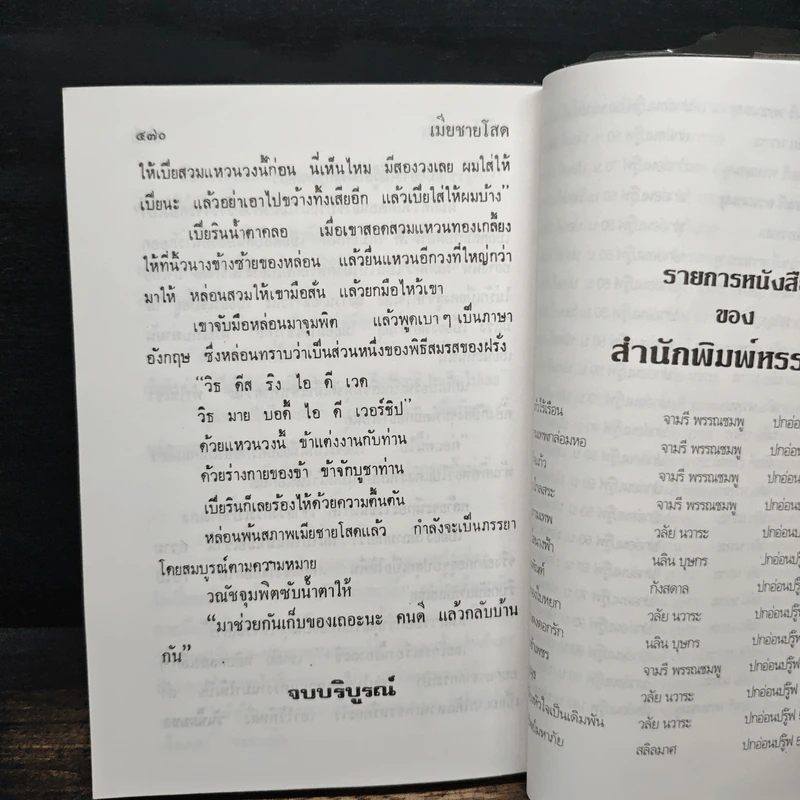 ๔๗๐ เมียชายโสด
ให้เบียสวมแหวนวงนี้ก่อน นี่เห็นไหม มีสองวงเลย ผมใส่ให้
เบียนะ แล้วอย่าเอาไปขว้างทิ้งเสียอีก แล้วเบียใส่ให้ผมบ้าง”
เบียรินน้ำตาคลอ เมื่อเขาสอดสวมแหวนทองเกลี้ยง
ให้ที่นิ้วนางข้างซ้ายของหล่อน แล้วยื่นแหวนอีกวงที่ใหญ่กว่า
มาให้ หล่อนสวมให้เขามือสั่น แล้วยกมือไหว้เขา
เขาจับมือหล่อนมาจุมพิต แล้วพูดเบาๆ เป็นภาษา
อังกฤษ ซึ่งหล่อนทราบว่าเป็นส่วนหนึ่งของพิธีสมรสของฝรั่ง
“วิธ ดีส ริง ไอ ดี เวด
วิธ มาย บอดี้ ไอ ดี เวอร์ชิป”
ด้วยแหวนวงนี้ ข้าแต่งงานกับท่าน
ด้วยร่างกายของข้า ข้าจักบูชาท่าน
เบียรินก็เลยร้องไห้ด้วยความตื้นตัน
หล่อนพ้นสภาพเมียชายโสดแล้ว กำลังจะเป็นภรรยา
โดยสมบูรณ์ตามความหมาย
วณัชจุมพิตซับน้ำตาให้
“มาช่วยกันเก็บของเถอะนะ คนดี แล้วกลับบ้าน
กัน”
จบบริบูรณ์
รายการหนังสือ
ของ
สำนักพิมพ์หรร
จามรี พรรณชมพู ปกอ่อน
จามรี พรรณชมพู ปกอ่อน
จามรี พรรณชมพู ปกอ่อน
จามรี พรรณชมพู ปกอ่อน
วลัย นวาระ ปกอ่อนปรู๊ฟ
นลิน บุษกร ปกอ่อนปรู๊ฟ
กังสดาล ปกอ่อนปรู๊ฟ
วลัย นวาระ ปกอ่อนปรู๊ฟ
นลิน บุษกร ปกอ่อนปรู๊ฟ
จามรี พรรณชมพู ปกอ่อนปรู๊ฟ
วลัย นวาระ ปกอ่อนปรู๊ฟ
หัวใจเป็นเดิมพัน วลัย นวาระ ปกอ่อนปรู๊ฟ 5
สลิลมาศ ปกอ่อนปรู๊ฟ 5